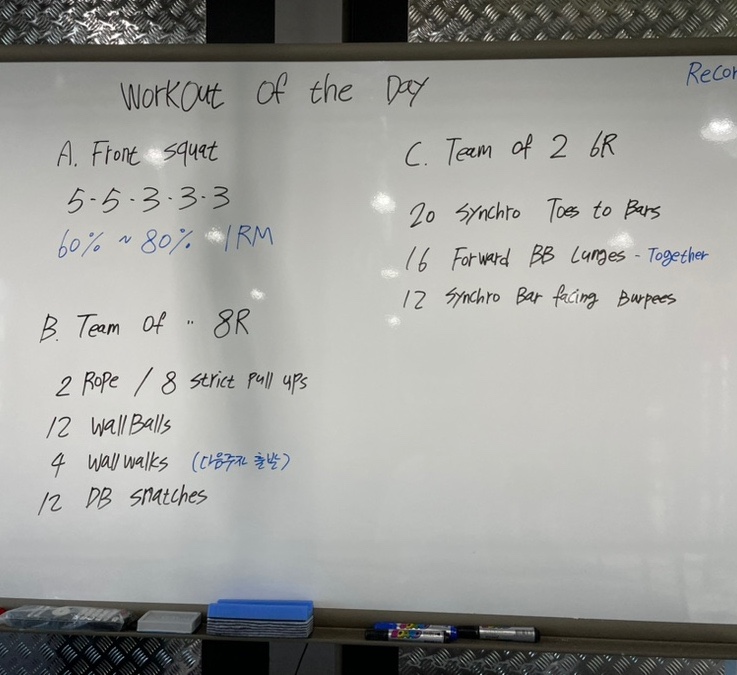 WorkOut Of the Day
A. Front squat
5-5-3-3-3
60% ~ 80% 1RM
B. Team Of ·· 8R
2 Rope / 8 strict Pull ups
12 WallBalls
4 Wall walks (다음주자 출발)
12 DB snatches
Recor
C. Team of 2 6R
20 Synchro Toes to Bars
16 Forward BB Lunges - Together
12 Synchro Bar facing Burpees